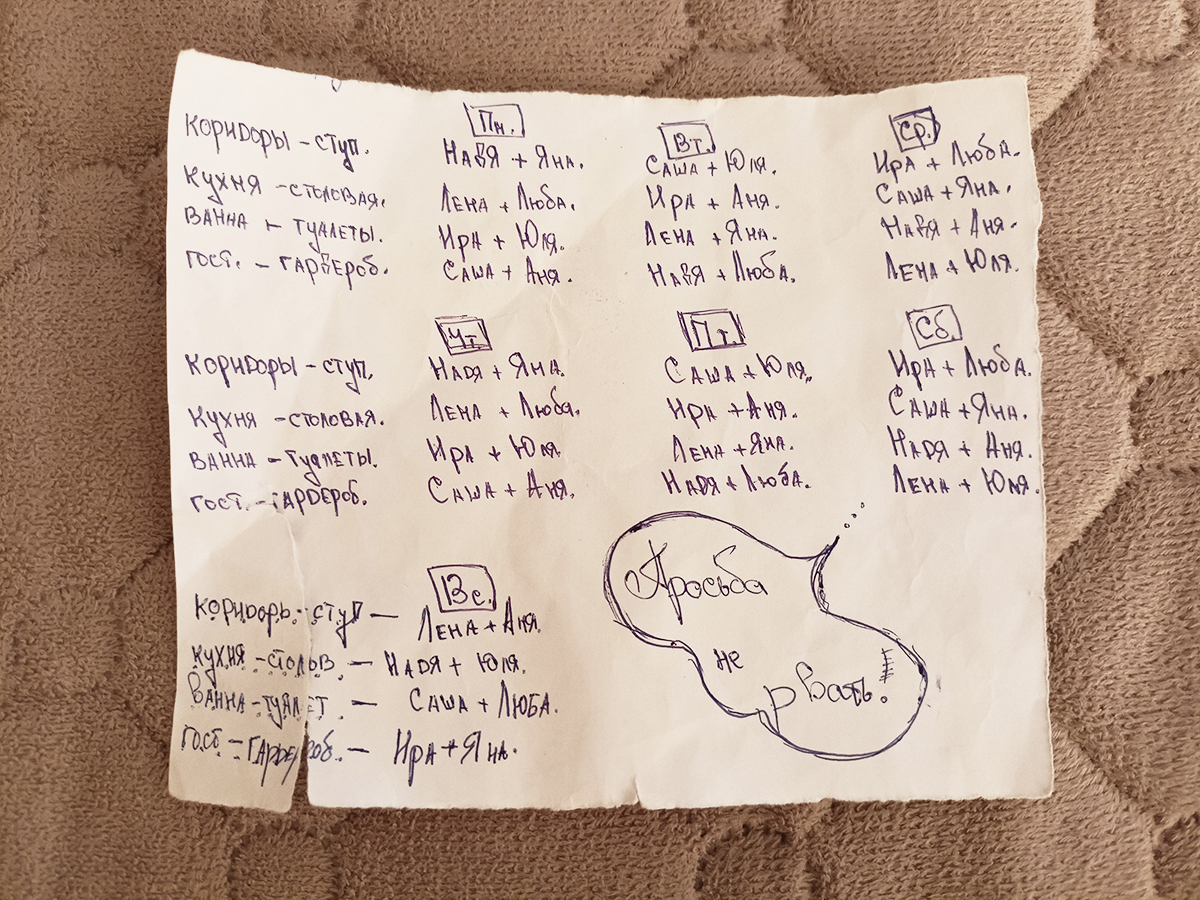 Пн. Вт. Ср.
Коридоры - ступ. Надя + Яна. Саша + Юля. Ира + Люба.
Кухня - столовая. Лена + Люба. Ира + Аня. Саша + Яна.
Ванна - туалеты. Ира + Юля. Лена + Яна. Надя + Аня.
Гост. - гардероб. Саша + Аня. Надя + Люба. Лена + Юля.
Чт Пт. Сб.
Коридоры - ступ. Надя + Яна. Саша + Юля. Ира + Люба.
Кухня - столовая. Лена + Люба. Ира + Аня. Саша + Яна.
Ванна - туалеты. Ира + Юля. Лена + Яна. Надя + Аня.
Гост. - гардероб. Саша + Аня. Надя + Люба. Лена + Юля.
Вс.
Коридоры - ступ — Лена + Аня.
Кухня - столов — Надя + Юля.
Ванна - туалет — Саша + Люба.
Гост. - гардероб. — Ира + Яна.
Просьба
не
рвать!